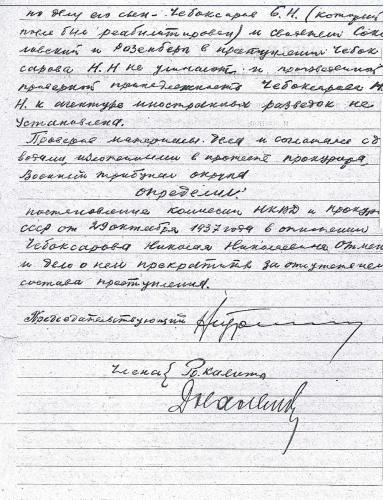 по делу его сын - Чебоксаров Б.Н. (который
позже был реабилитирован) и свидетели Соко
ловский и Розенберг в преступлении Чебок
сарова Н.Н. не уличают и произведенной
проверкой принадлежность Чебоксарова Н.
Н. к агентуре иностранных разведок не
установлена.
Проверив материалы дела и соглашаясь с д
водами, изложенными в протесте прокурора,
Военный трибунал округа
определил:
постановление комиссии НКВД и прокур
СССР от 29 октября 1937 года в отношении
Чебоксарова Николая Николаевича отмен
и дело о нем прекратить за отсутствием
состава преступления.
Председательствующий
Члены